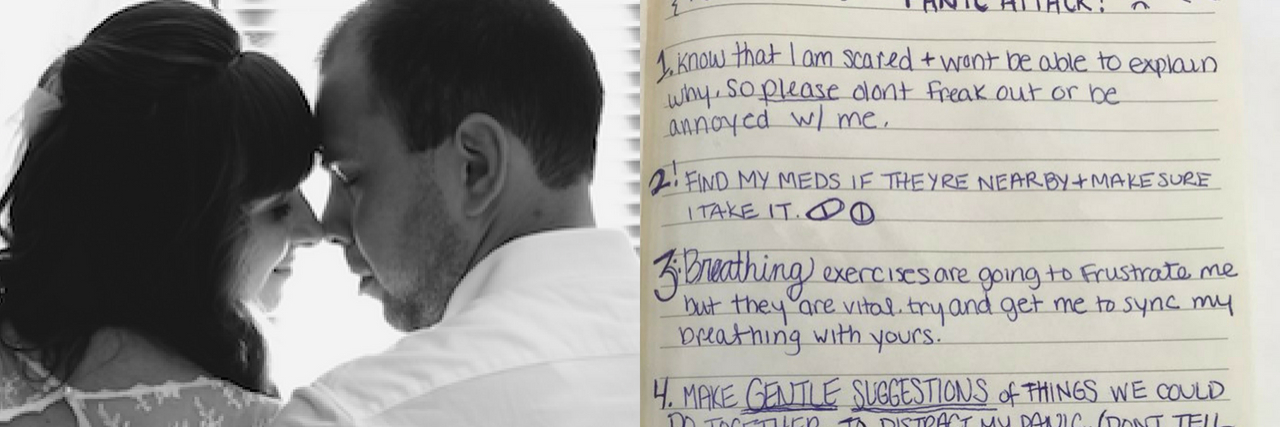 PANIC ATTACK!
1. know that I am scared + wont be able to explain
why, so please dont freak out or be
annoyed w/ me.
2. FIND MY MEDS IF THEYRE NEARBY + MAKE SURE
I TAKE IT.
3. Breathing exercises are going to frustrate me
but they are vital. try and get me to sync my
breathing with yours.
4. MAKE GENTLE SUGGESTIONS of THINGS WE COULD
DO TOGETHER TO DISTRACT MY PANIC. (DONT TELL